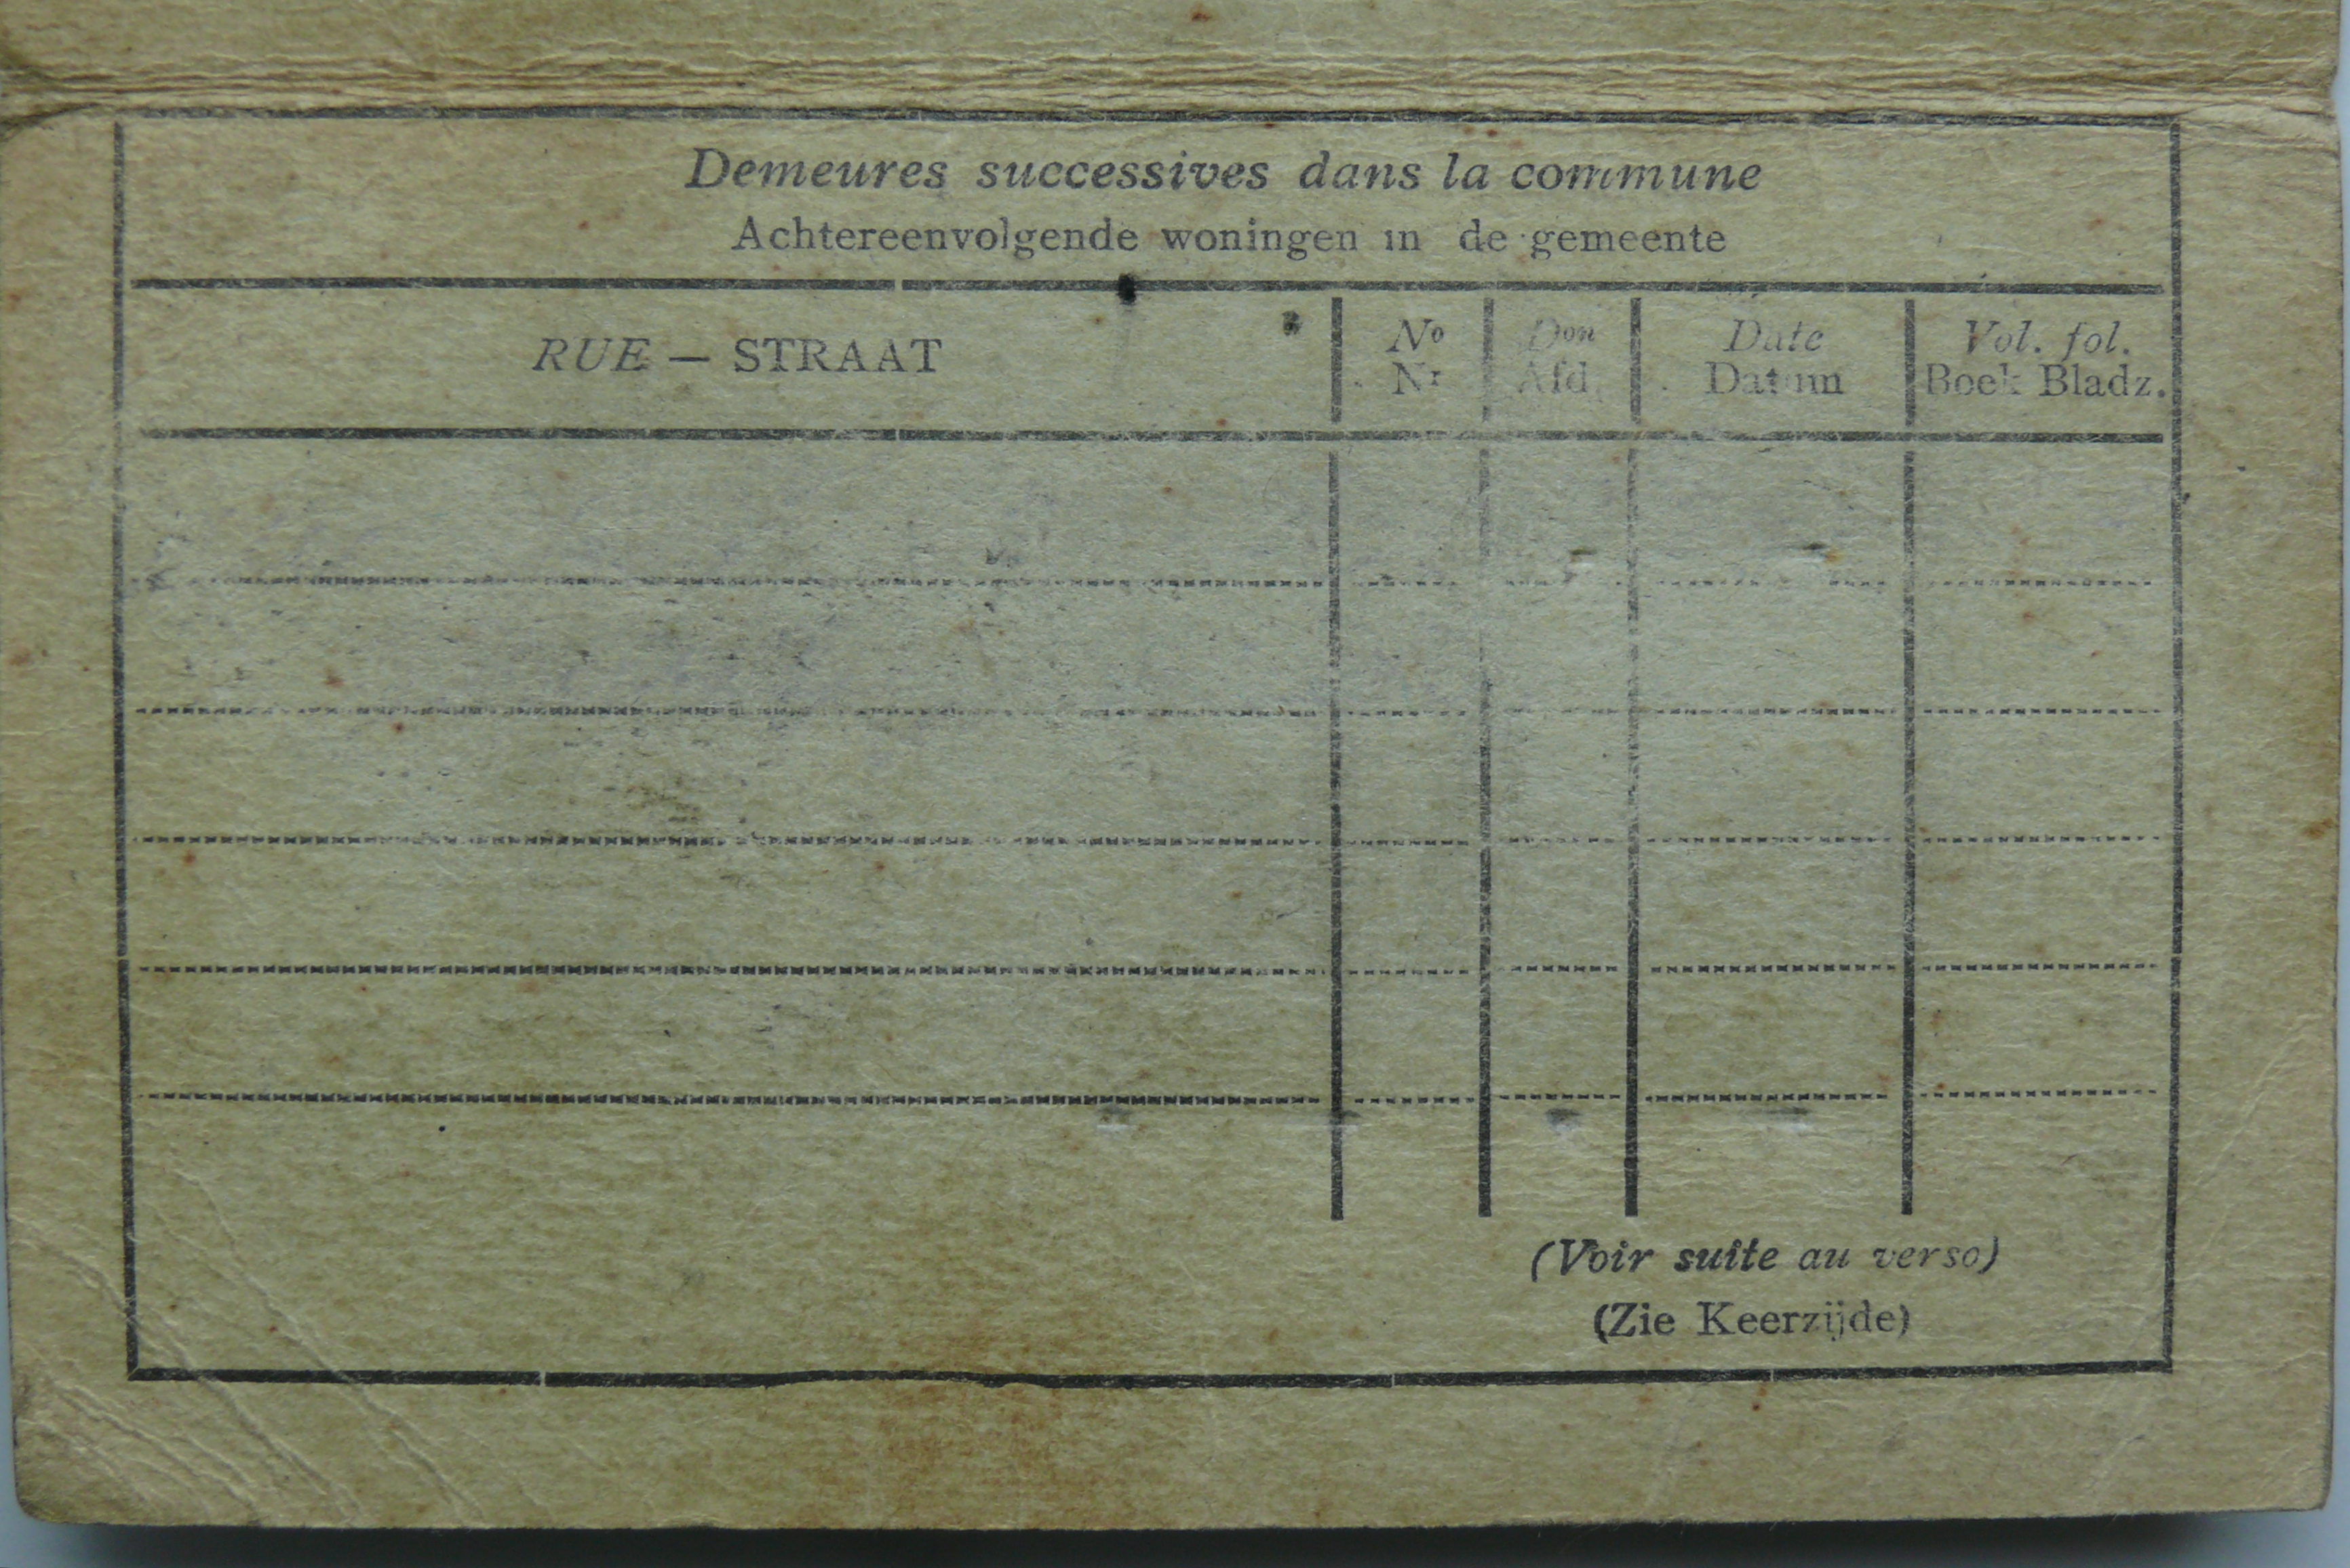 Demeures successives dans la commune
Achtereenvolgende woningen in de gemeente
RUE — STRAAT
Nº Dᵒⁿ Date Vol. fol.
Nʳ Afd. Datum Boek Bladz.
(Voir suite au verso)
(Zie Keerzijde)